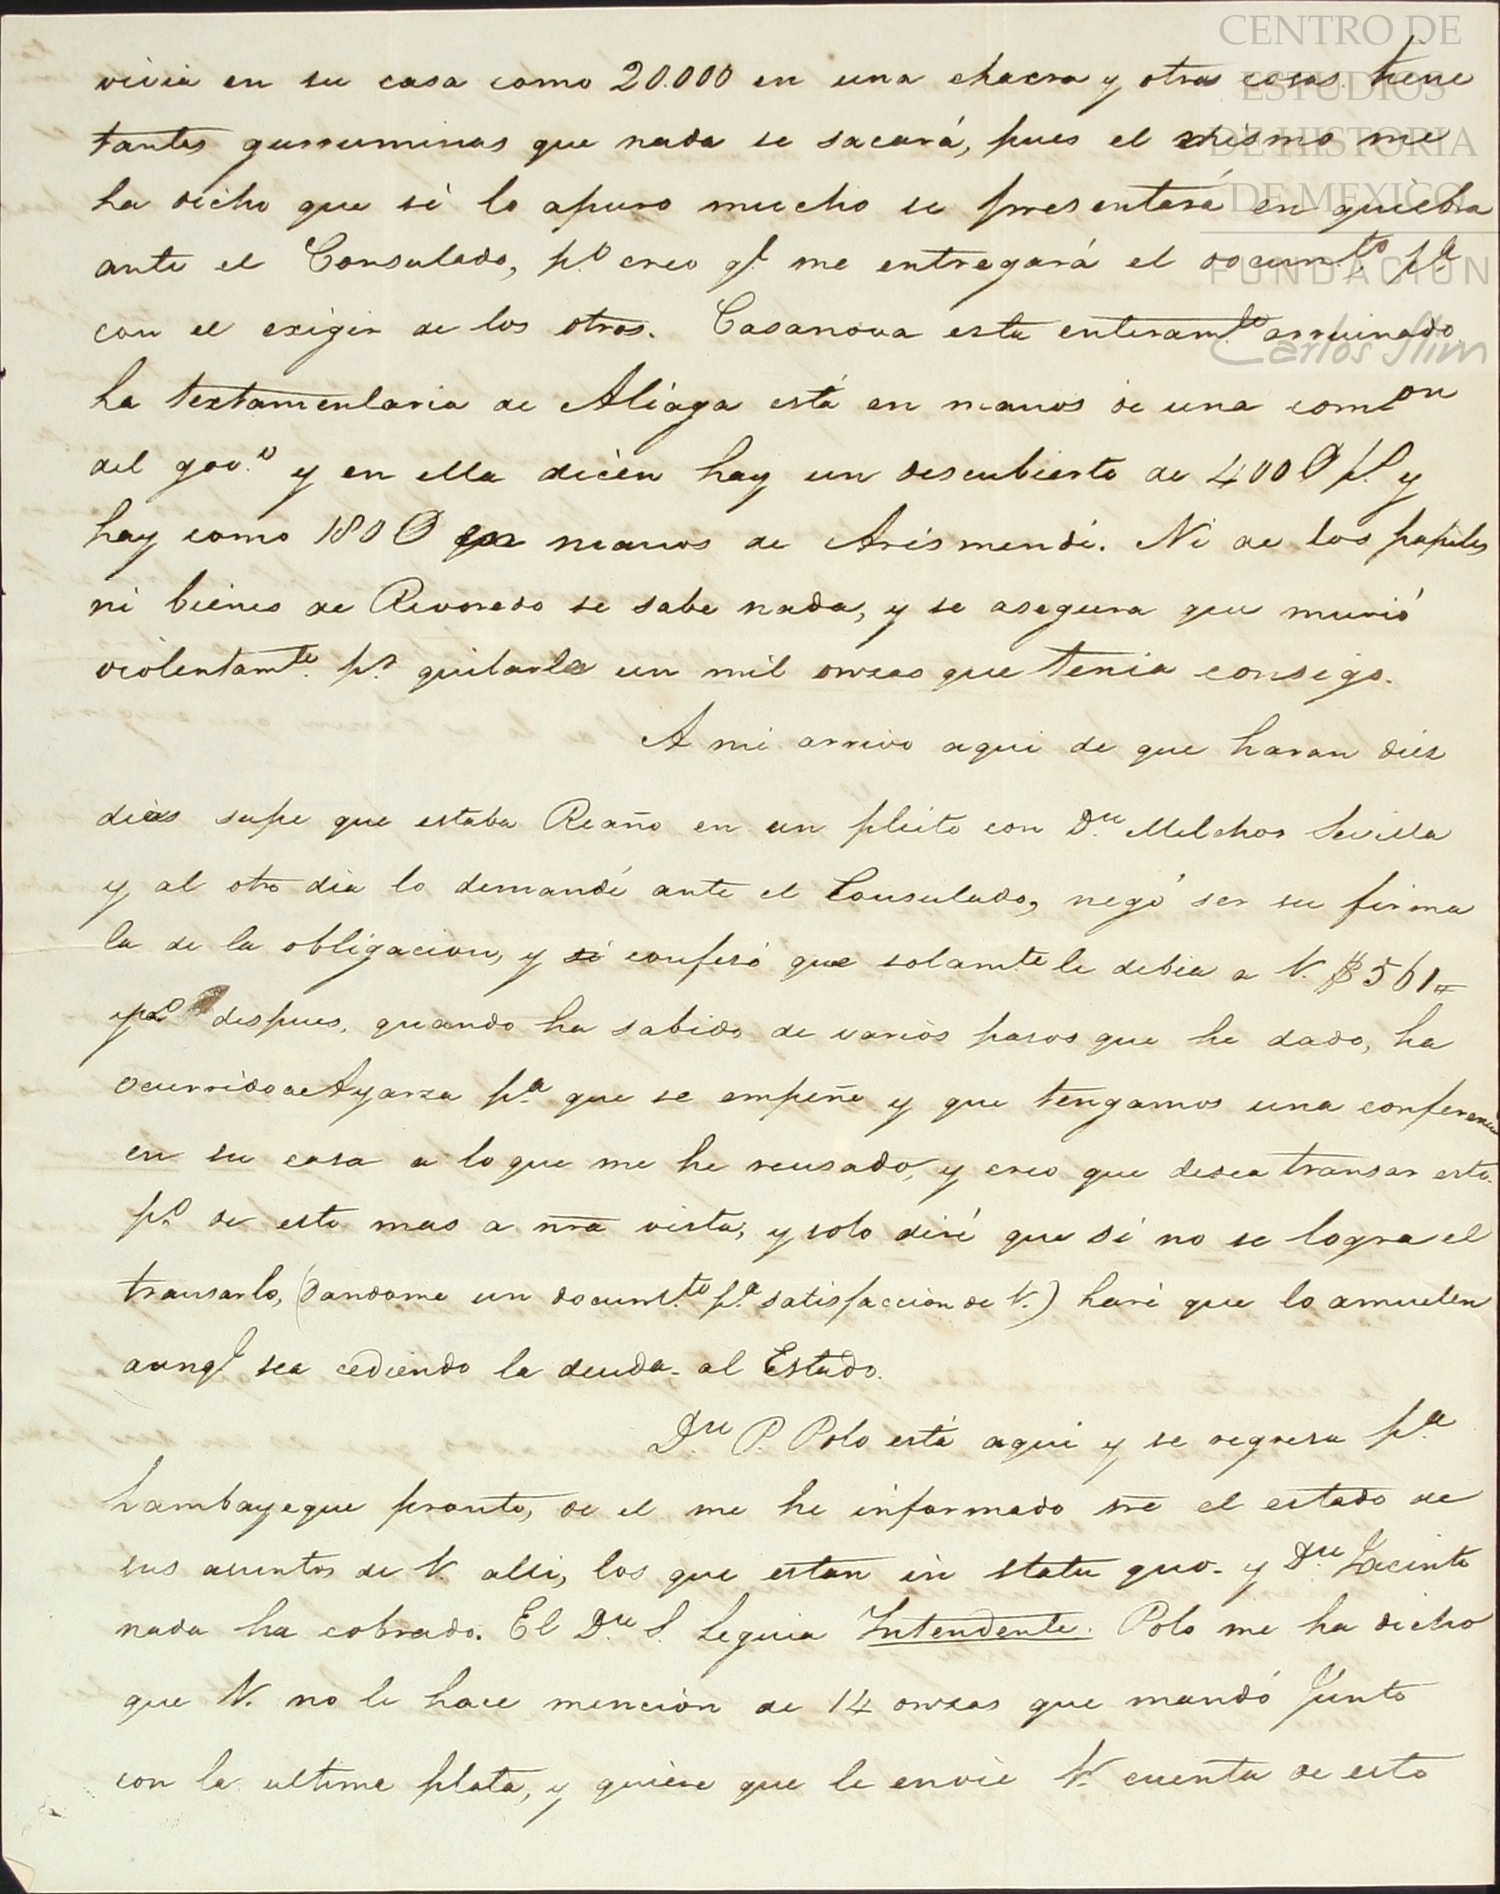 CENTRO DE
ESTUDIOS
DE HISTORIA
DE MEXICO
FUNDACIÓN
Carlos Slim
vivia en su casa como 20.000 en una chacra y otras cosas tiene
tantas gurruminas que nada se sacará, pues el mismo me
ha dicho que si lo apuro mucho se presentará en quiebra
ante el Consulado, p.º creo q.e me entregará el docum.to p.a
con el exigir de los otros. Casanova esta enteram.te arruinado
La textamentaria de Aliaga está en manos de una comi.on
del gov.º y en ella dicen hay un descubierto de 400 p.s y
hay como 180 en manos de Arismendi. Ni de los papeles
ni bienes de Rivoredo se sabe nada, y se asegura que murió
violentam.te p.r quitarle un mil onzas que tenia consigo.
A mi arrivo aqui de que haran diez
dias supe que estaba Reaño en un pleito con D.n Melchor Sevilla
y al otro dia lo demandé ante el Consulado, negó ser su firma
la de la obligacion, y si confesó que solamte le debia a V. $561
p.º despues, quando ha sabido de varios pasos que he dado, ha
ocurrido a Ayarza p.a que se empeñe y que tengamos una conferencia
en su casa a lo que me he reusado, y creo que desea transar esto
p.º de esto mas a nra vista, y solo diré que si no se logra el
transarlo, (dandome un docum.to p.a satisfaccion de V.) haré que lo amuelen
aunq.e sea cediendo la deuda al Estado.
D.n P. Polo está aqui y se regresa p.a
Lambayeque pronto, de el me he informado sre el estado de
sus asuntos de V. alli, los que estan in statu quo y D.n Jacinto
nada ha cobrado. El D.n S. Leguia Intendente. Polo me ha dicho
que V. no le hace mencion de 14 onzas que mandó junto
con la ultima plata, y quiere que le envie V. cuenta de esto